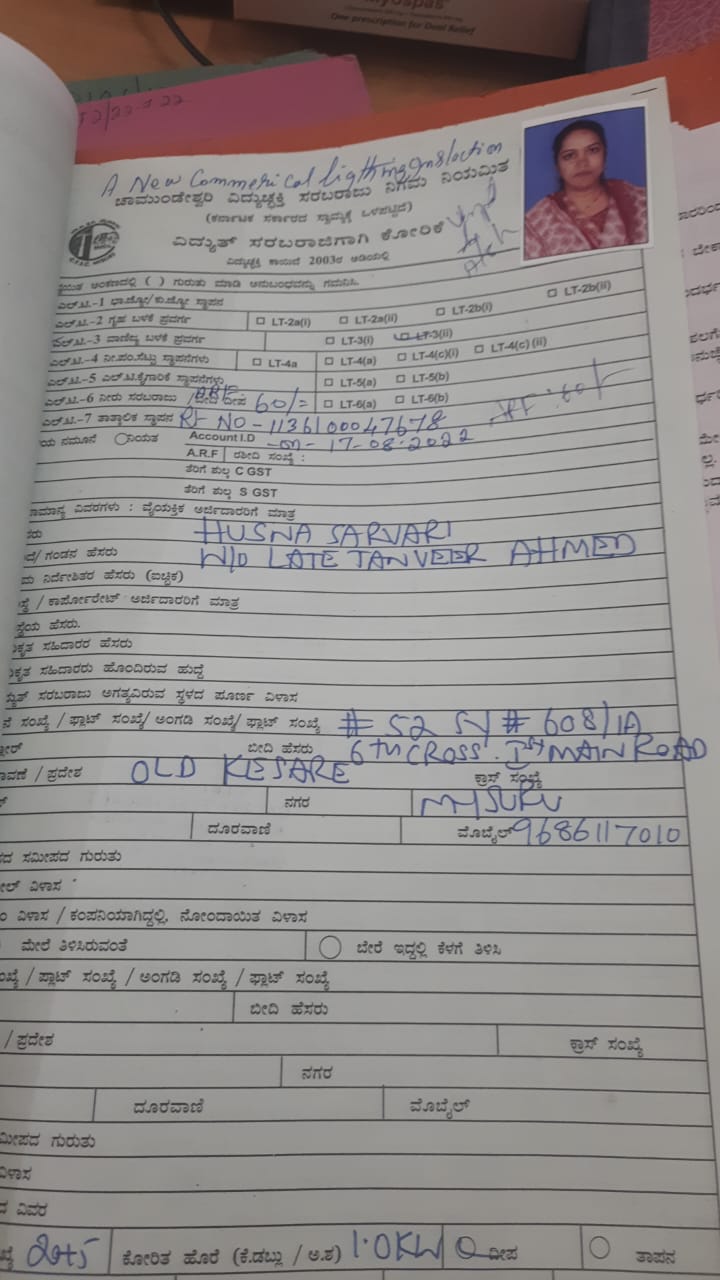 One prescription for Dual Relief
A New Commerical ligthing Inslaction
ಚಾಮುಂಡೇಶ್ವರಿ ವಿದ್ಯುಚ್ಛಕ್ತಿ ಸರಬರಾಜು ನಿಗಮ ನಿಯಮಿತ
(ಕರ್ನಾಟಕ ಸರ್ಕಾರದ ಸ್ವಾಮ್ಯಕ್ಕೆ ಒಳಪಟ್ಟಿದೆ)
ವಿದ್ಯುತ್ ಸರಬರಾಜಿಗಾಗಿ ಕೋರಿಕೆ
ವಿದ್ಯುಚ್ಛಕ್ತಿ ಕಾಯಿದೆ 2003ರ ಅಡಿಯಲ್ಲಿ
ಅಂಕಣದಲ್ಲಿ ( ) ಗುರುತು ಮಾಡಿ ಅನುಬಂಧವನ್ನು ಗಮನಿಸಿ.
ಎಲ್.ಟಿ.-1 ಭಾ.ಜ್ಯೋ/ಕು.ಜ್ಯೋ ಸ್ಥಾಪನ
ಎಲ್.ಟಿ.-2 ಗೃಹ ಬಳಕೆ ಪ್ರವರ್ಗ LT-2a(i) LT-2a(ii) LT-2b(i) LT-2b(ii)
ಎಲ್.ಟಿ.-3 ವಾಣಿಜ್ಯ ಬಳಕೆ ಪ್ರವರ್ಗ LT-3(i) LT-3(ii)
ಎಲ್.ಟಿ.-4 ನೀ.ಪಂ.ಸೆಟ್ಟು ಸ್ಥಾಪನೆಗಳು LT-4a LT-4(a) LT-4(c)(i) LT-4(c)(ii)
ಎಲ್.ಟಿ.-5 ಎಲ್.ಟಿ.ಕೈಗಾರಿಕೆ ಸ್ಥಾಪನೆಗಳು LT-5(a) LT-5(b)
ಎಲ್.ಟಿ.-6 ನೀರು ಸರಬರಾಜು /ಬೀದಿ ದೀಪ 60/= LT-6(a) LT-6(b)
ಎಲ್.ಟಿ.-7 ತಾತ್ಕಾಲಿಕ ಸ್ಥಾಪನ RT NO-1136100047678
ನಮೂನೆ ನಿಯತ Account I.D -on- 17-08-2022
A.R.F ರಶೀದಿ ಸಂಖ್ಯೆ :
ತೆರಿಗೆ ಶುಲ್ಕ C GST
ತೆರಿಗೆ ಶುಲ್ಕ S GST
ವಿವರಗಳು : ವೈಯಕ್ತಿಕ ಅರ್ಜಿದಾರರಿಗೆ ಮಾತ್ರ
HUSNA SARVARI
ಗಂಡನ ಹೆಸರು W/o LATE TANVEER AHMED
ನಿರ್ದೇಶಿತರ ಹೆಸರು (ಐಚ್ಛಿಕ)
/ ಕಾರ್ಪೋರೇಟ್ ಅರ್ಜಿದಾರರಿಗೆ ಮಾತ್ರ
ಹೆಸರು.
ಸಹಿದಾರರ ಹೆಸರು
ಸಹಿದಾರರು ಹೊಂದಿರುವ ಹುದ್ದೆ
ಸರಬರಾಜು ಅಗತ್ಯವಿರುವ ಸ್ಥಳದ ಪೂರ್ಣ ವಿಳಾಸ
ಸಂಖ್ಯೆ / ಪ್ಲಾಟ್ ಸಂಖ್ಯೆ/ ಅಂಗಡಿ ಸಂಖ್ಯೆ/ ಫ್ಲಾಟ್ ಸಂಖ್ಯೆ # 52 SY # 608/1A
ಬೀದಿ ಹೆಸರು 6th CROSS. Ist MAIN ROAD
/ ಪ್ರದೇಶ OLD KESARE ಕ್ರಾಸ್ ಸಂಖ್ಯೆ
ನಗರ MYSURU
ದೂರವಾಣಿ ಮೊಬೈಲ್ 9686117010
ಸಮೀಪದ ಗುರುತು
ವಿಳಾಸ
ವಿಳಾಸ / ಕಂಪನಿಯಾಗಿದ್ದಲ್ಲಿ, ನೋಂದಾಯಿತ ವಿಳಾಸ
ಮೇಲೆ ತಿಳಿಸಿರುವಂತೆ ಬೇರೆ ಇದ್ದಲ್ಲಿ ಕೆಳಗೆ ತಿಳಿಸಿ
/ ಪ್ಲಾಟ್ ಸಂಖ್ಯೆ / ಅಂಗಡಿ ಸಂಖ್ಯೆ / ಫ್ಲಾಟ್ ಸಂಖ್ಯೆ
ಬೀದಿ ಹೆಸರು
/ ಪ್ರದೇಶ ಕ್ರಾಸ್ ಸಂಖ್ಯೆ
ನಗರ
ದೂರವಾಣಿ ಮೊಬೈಲ್
ಗುರುತು
ವಿಳಾಸ
ವಿವರ
ಕೋರಿತ ಹೊರೆ (ಕೆ.ಡಬ್ಲು / ಅ.ಶ) 1.0KW ದೀಪ ತಾಪನ